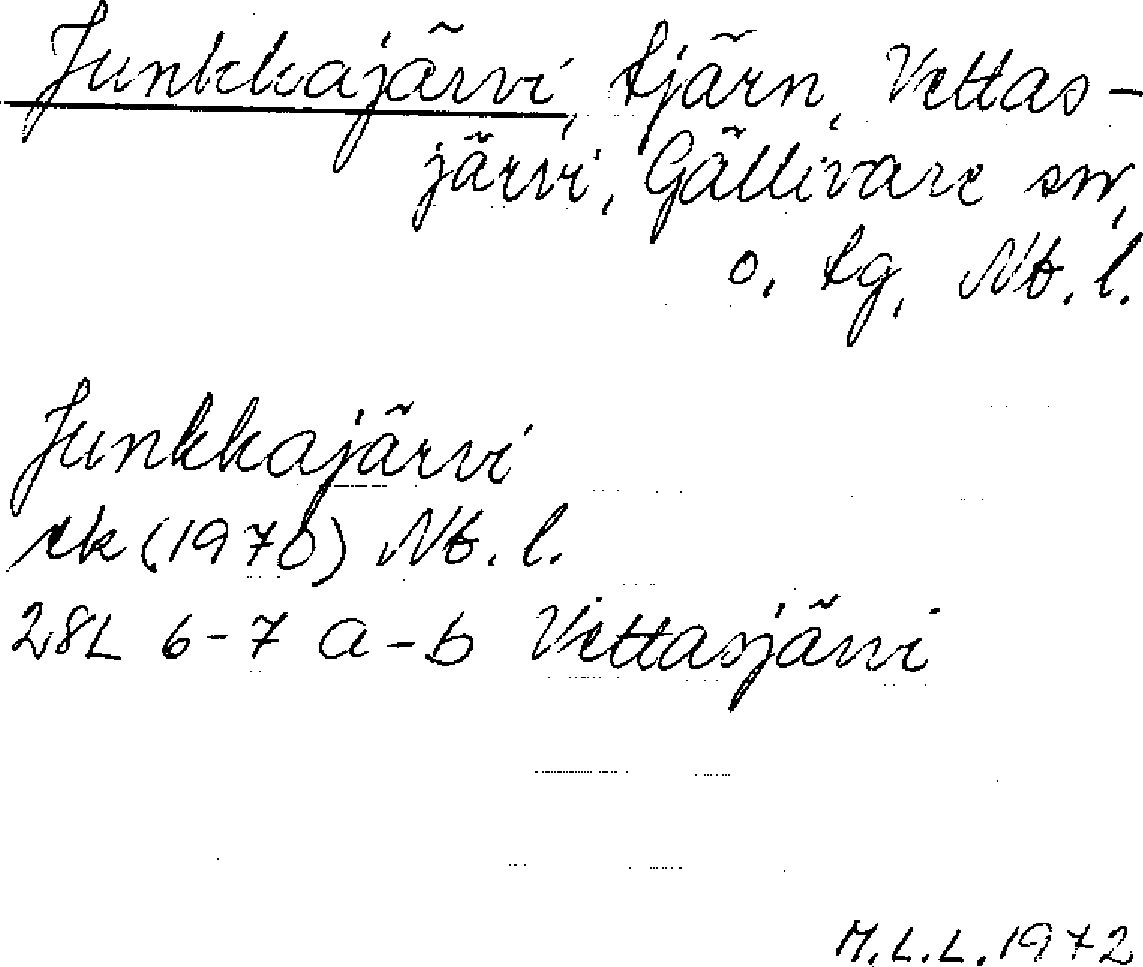 Junkkajärvi, tjärn, Vettas-
järvi, Gällivare sn,
o. tg, Nb. l.
Junkkajärvi
ek (1970) Nb. l.
28L 6-7 a-b Vettasjärvi
M.L.L. 1972